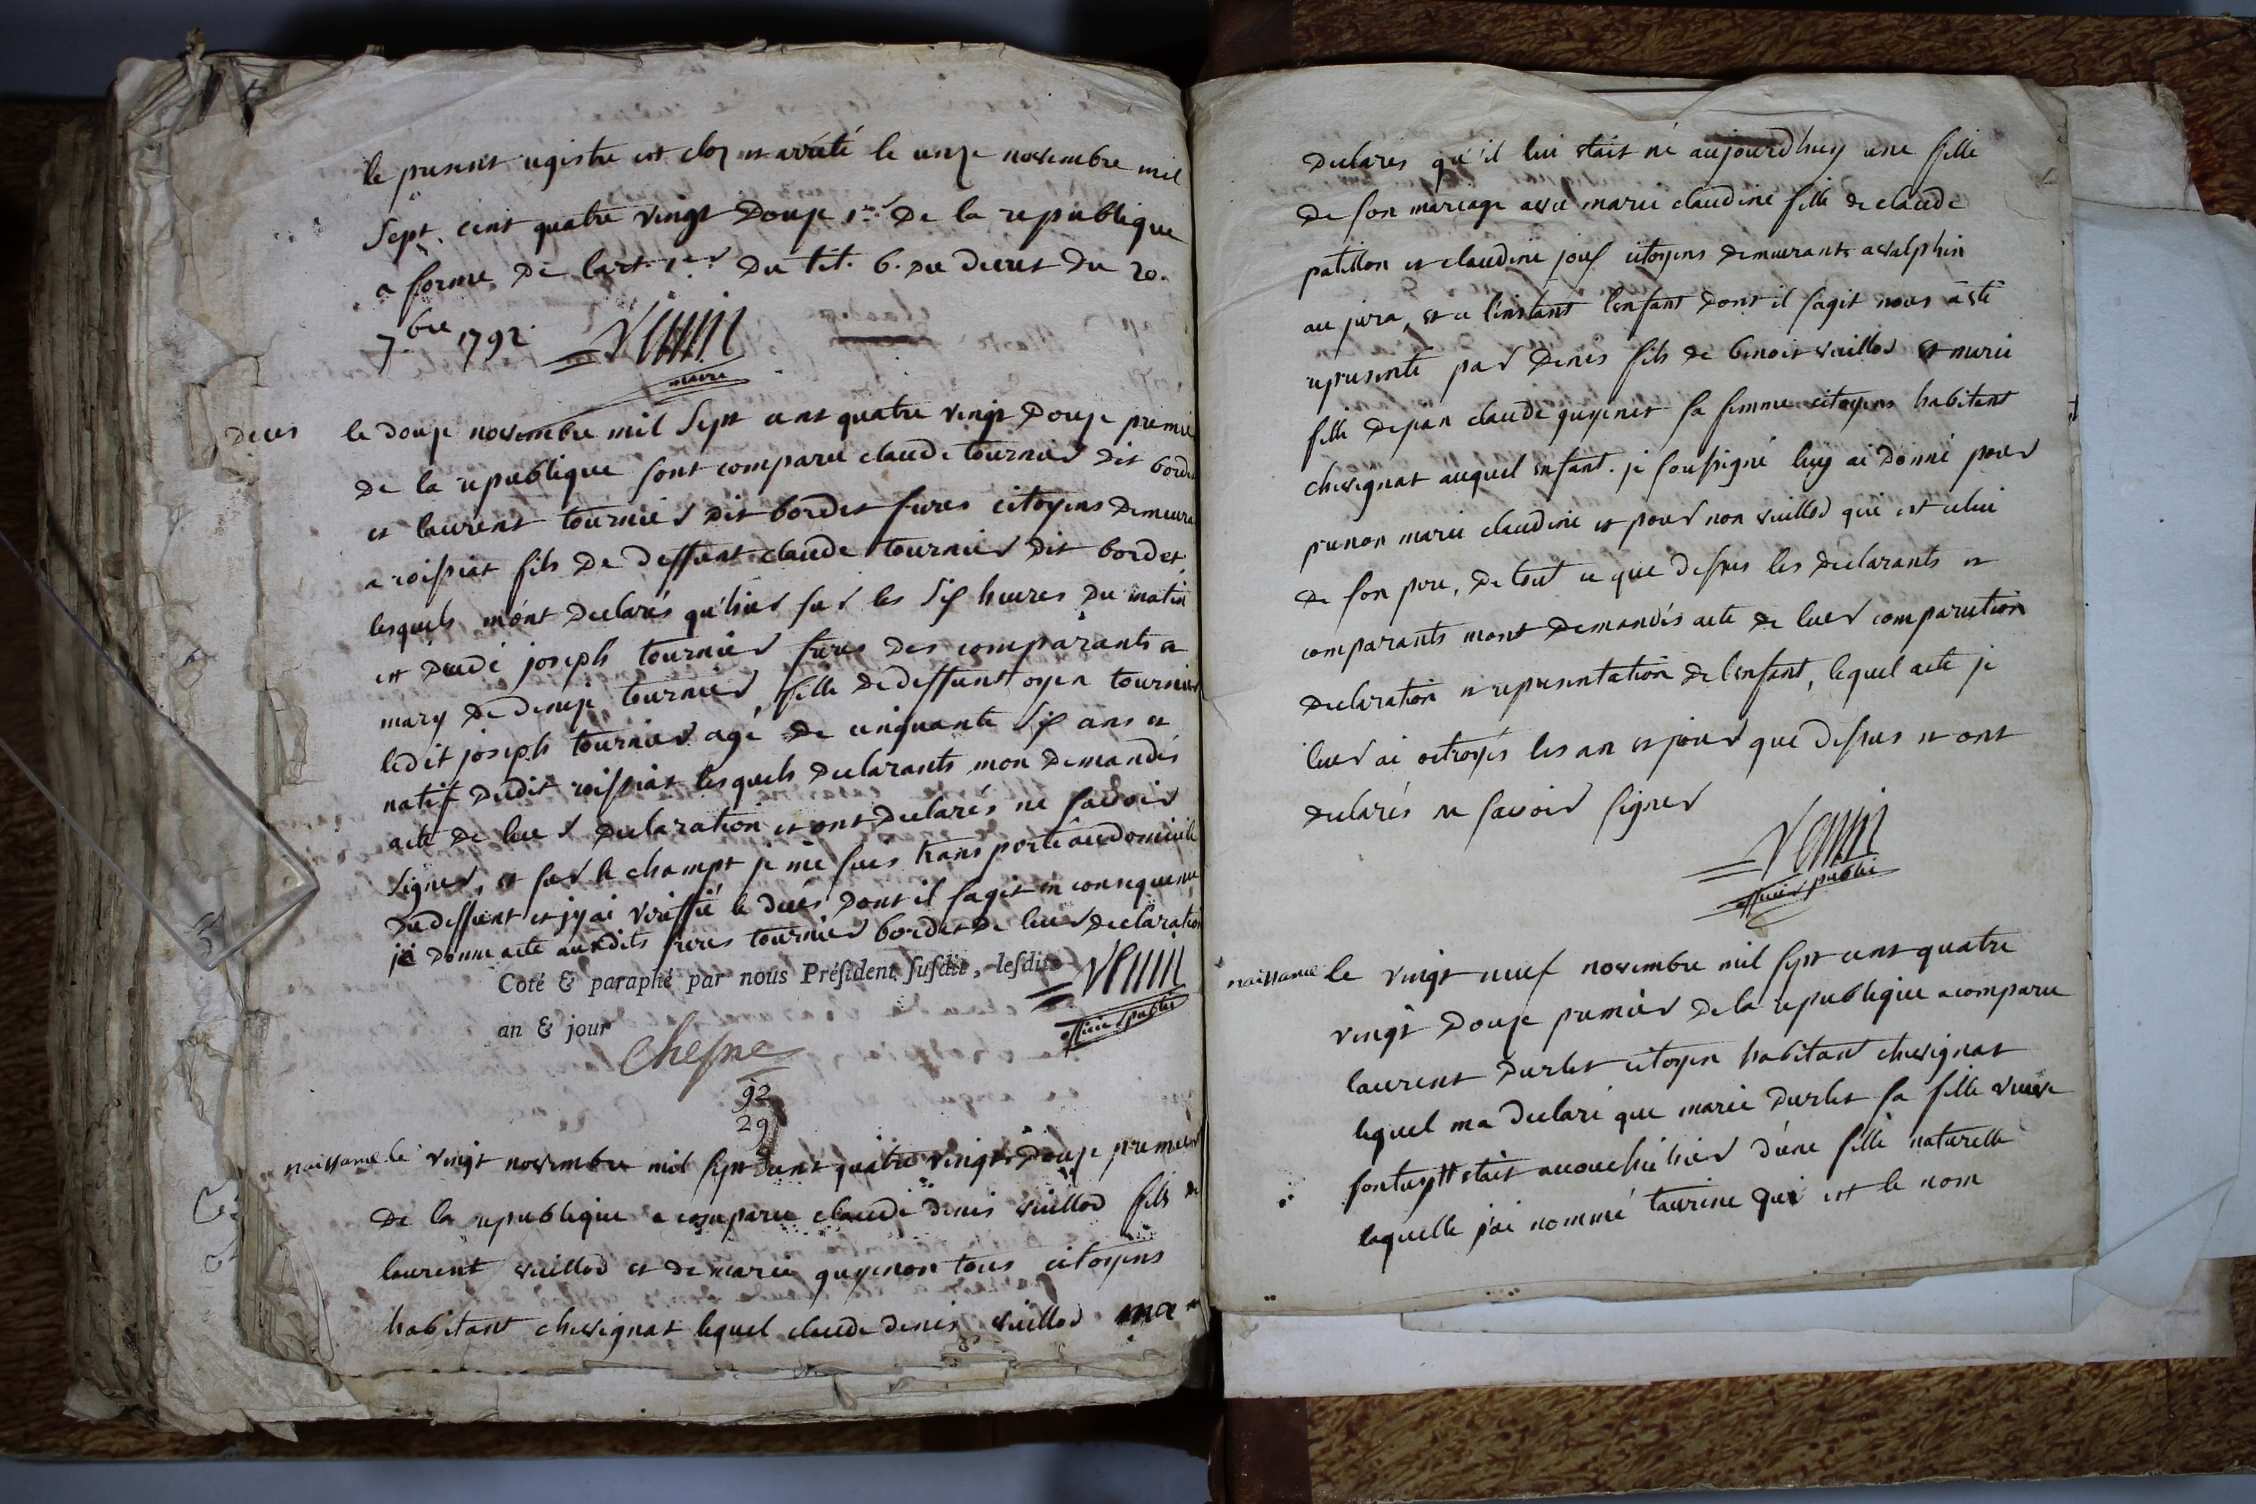 le present registre est cloz et arrété le unze novembre mil
Sept. cent quatre vingt Douze 1er De la republique
a forme De l'art. 1er Du tit. 6. du decret du 20.
7bre 1792.
maire
Deces
le douze novembre mil Sept cent quatre vingt Douze premier
De la republique sont comparu claude tournier Dit bordet
et laurent tournier Dit bordet freres citoyens Demeura
a roissiat fils De deffunt claude tournier Dit bordet,
lesquels m'ont Declarés qu'hier sur les Six heures Du matin
est decedé joseph tournier frere Des comparants et
mary De denise tournier, fille De deffunt oyen tournier
ledit joseph tournier agé De cinquante Six ans et
natif dudit roissiat lesquels Declarants mon Demandés
acte De leur Declaration et ont Declarés ne savoir
signer, et sur le champt je me suis transporté au domicile
Du deffunt et jy ai veriffié le decés Dont il sagit en consequence
je Donne acte auxdits freres tournier bordet De leur Declaration
Coté & paraphé par nous Préſident ſuſdit, leſdits
an & jour
officier public
Chesne
92
29
naissance
le vingt novembre mil sept cent quatre vingt Douze premier
De la republique a comparu claude denis vuillod fils de
laurent vuillod et de marie guyenon tous citoyens
habitant chevignat lequel claude denis vuillod ma
Declarés qu'il lui etait né aujourdhuy une fille
De son mariage avec marie claudine fille de claude
patillon et claudine jouf citoyens demeurants a valphin
au jura, et a l'instant l'enfant dont il sagit nous a eté
representé par Denis fils de benoit vuillod et marie
fille de jean claude guyenet sa femme citoyens habitant
chevignat auquel enfant. je soussigné luy ai Donné pour
prenon marie claudine et pour non vuillod qui est celui
De son pere, De tout ce que dessus les Declarants et
comparants mont Demandés acte de leur comparution
Declaration et representation de l'enfant, lequel acte je
leur ai octroyés les an et jour que dessus et ont
Declarés ne savoir signer
officier public
naissance
le vingt neuf novembre mil sept cent quatre
vingt Douze premier De la republique a comparu
laurent Durlet citoyen habitant chevignat
lequel ma Declaré que marie Durlet sa fille veuve
etait accouchée hier d'une fille naturelle
laquelle j'ai nommé laurine qui est le nom